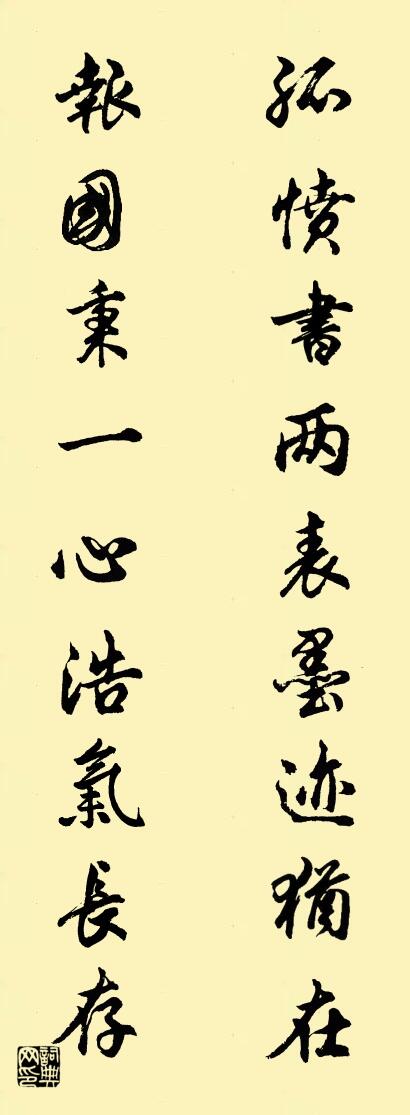 孤憤書两表墨迹猶在
報國秉一心浩氣長存
詞典网印